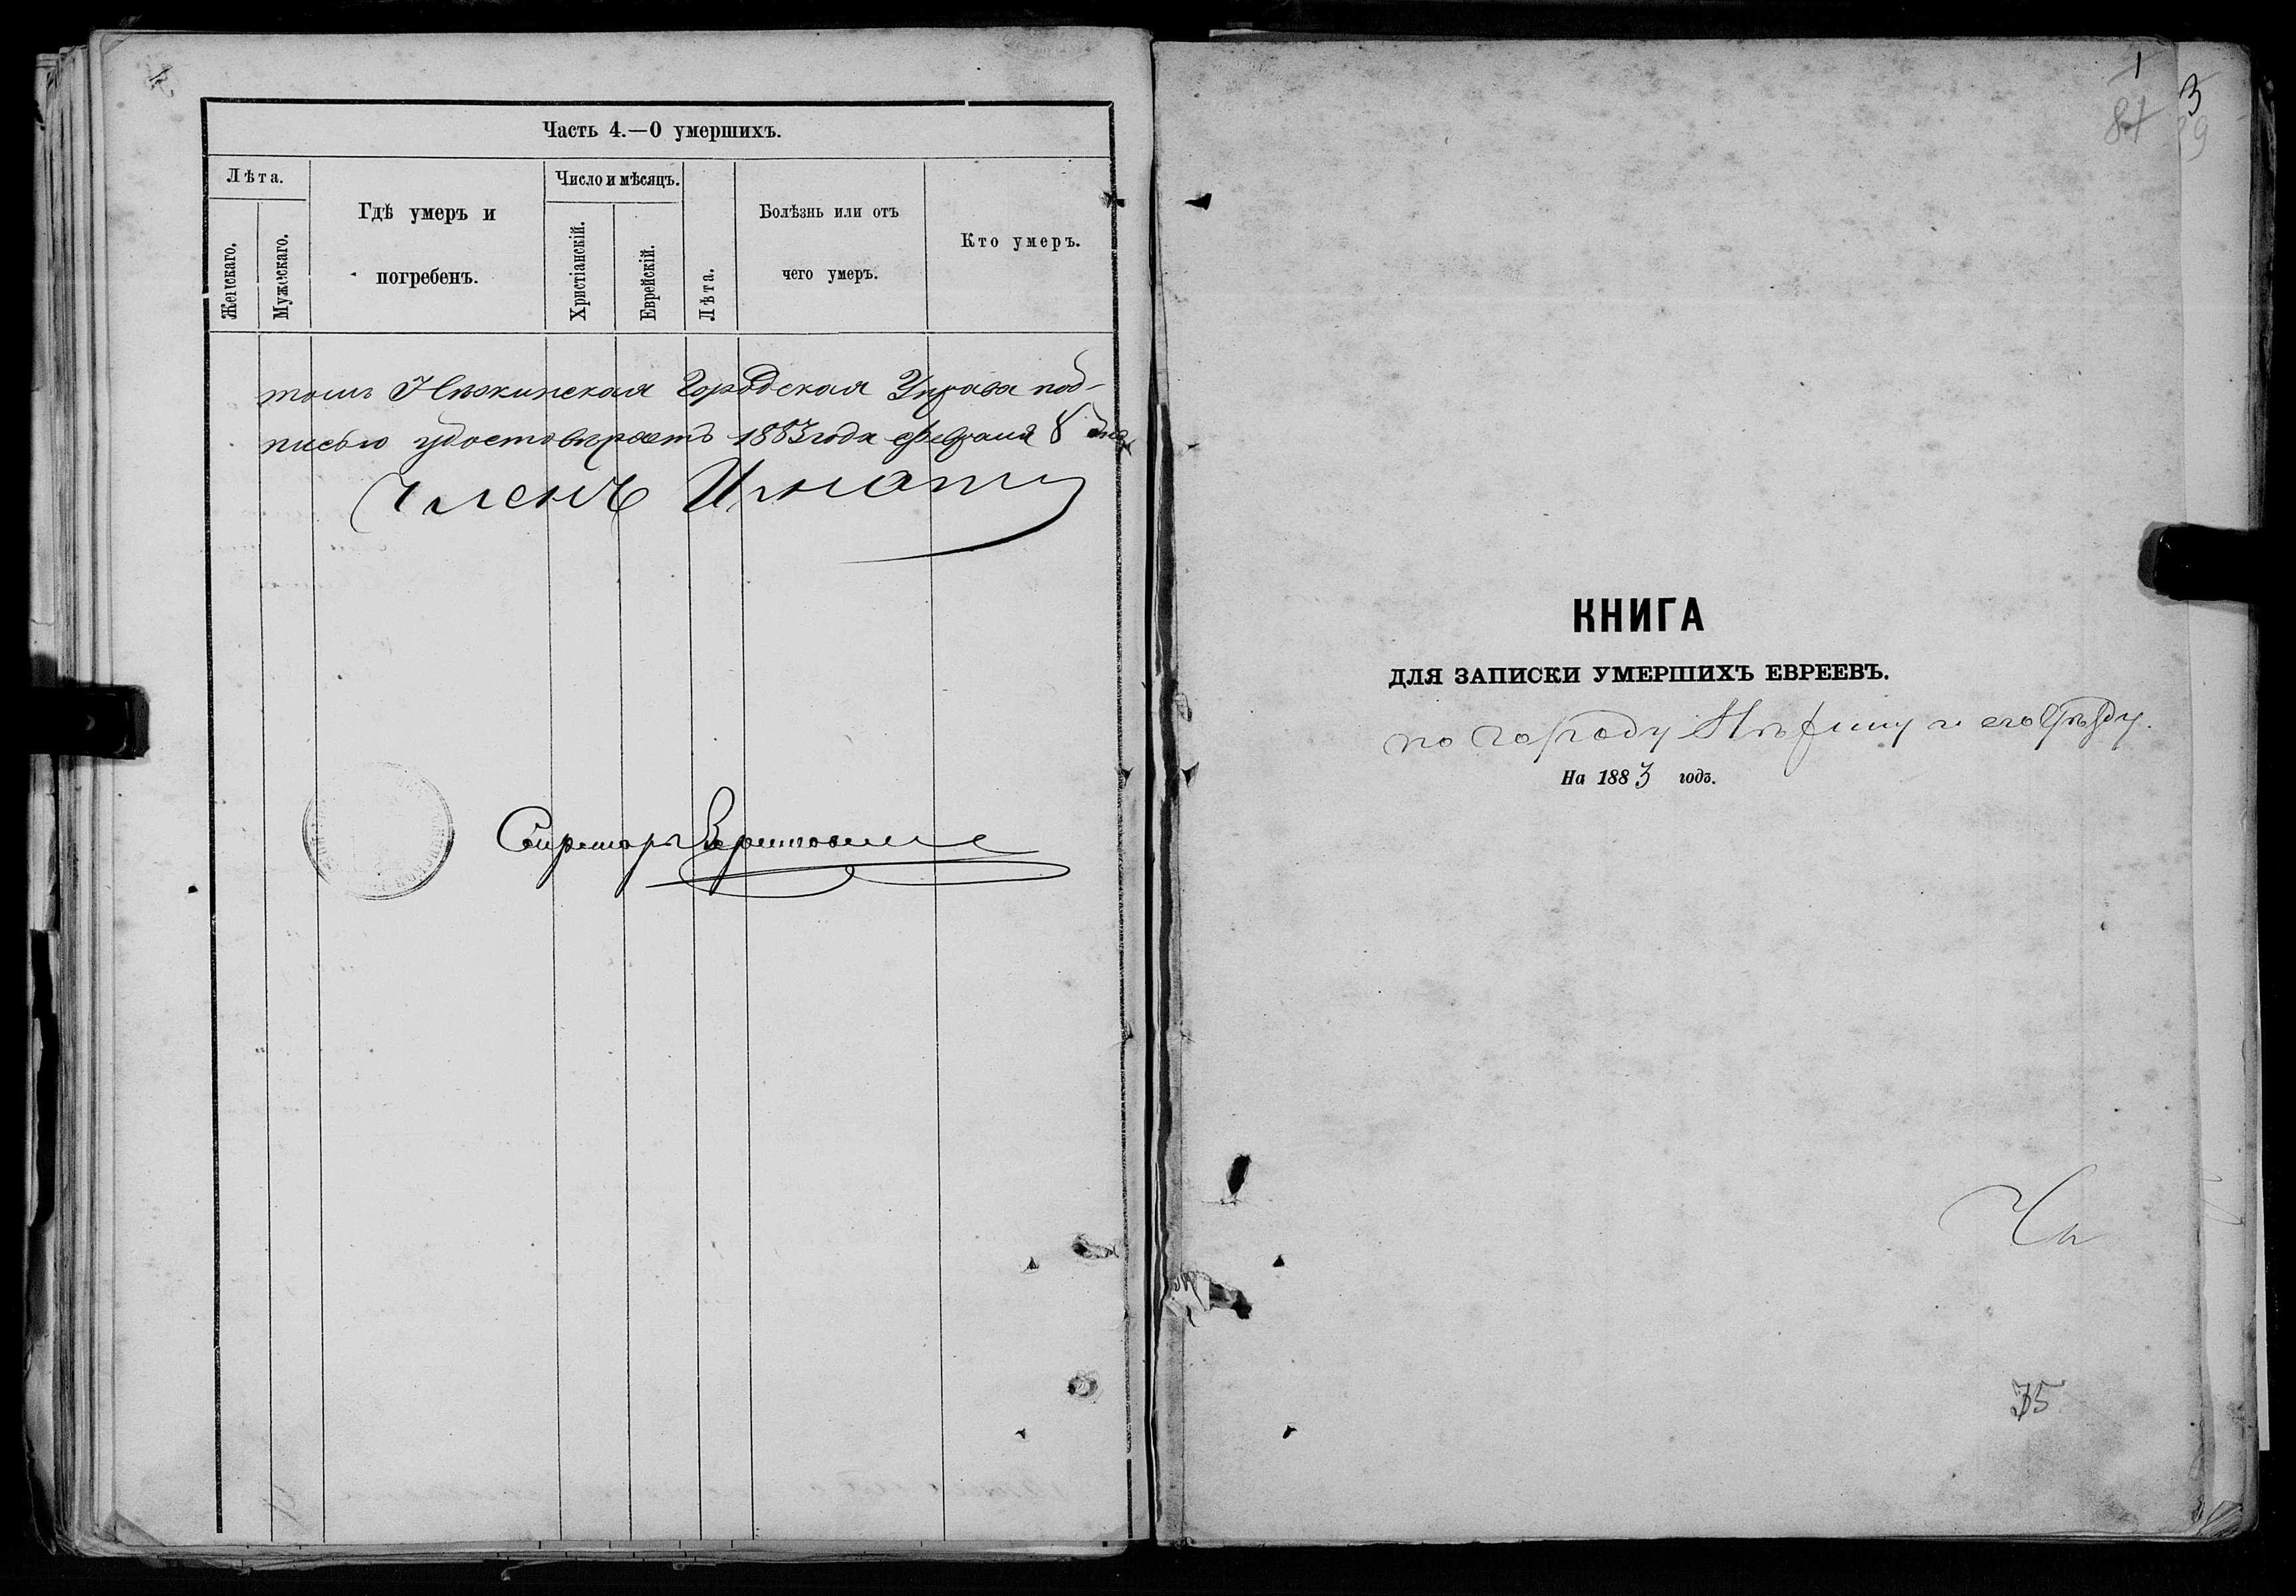 Часть 4.—О умершихъ.
Лѣта.
Женскаго.
Мужескаго.
Гдѣ умеръ и
погребенъ.
Число и мѣсяцъ.
Христіанскій.
Еврейскій.
Лѣта.
Болѣзнь или отъ
чего умеръ.
Кто умеръ.
томъ Нѣжинская Городская Управа под-
писью удостовѣряетъ 1883 года февраля 8 дня
Членъ
Секретарь
1
81
3
КНИГА
ДЛЯ ЗАПИСКИ УМЕРШИХЪ ЕВРЕЕВЪ.
по городу Нѣжину и его уѣзду.
На 1883 годъ.
35